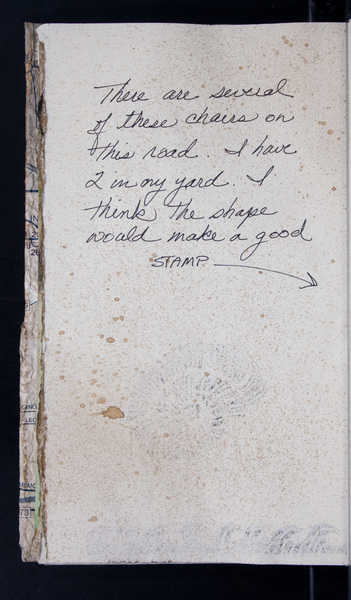 There are several
of these chairs on
this road. I have
2 in my yard. I
think the shape
would make a good
STAMP